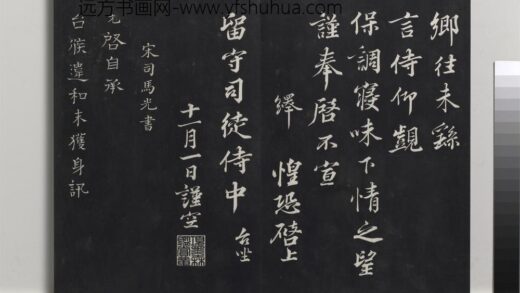 远方书画网 www.yfshuhua.com
鄉往未繇
言侍仰覿
保調寢味下情之望
謹奉啓不宣
繹 惶恐啓上
留守司徒侍中 台坐
十一月一日謹空
宋司馬光書
光啓自承
台候違和未獲身訊